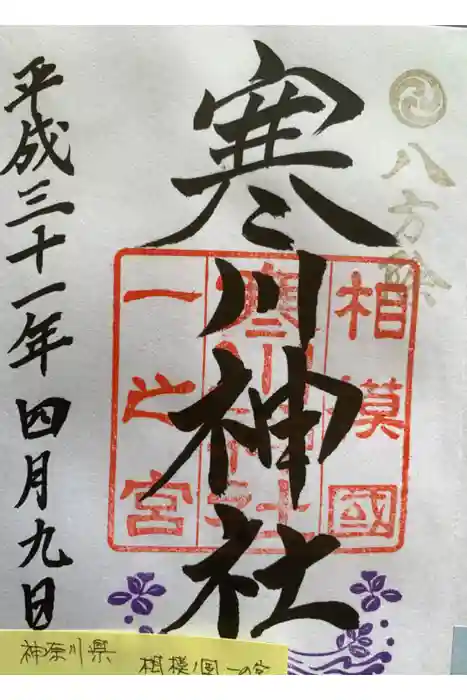 八方除
相模國
寒川神社
一之宮
寒川神社
平成三十一年四月九日
神奈川県
相模ノ国一の宮